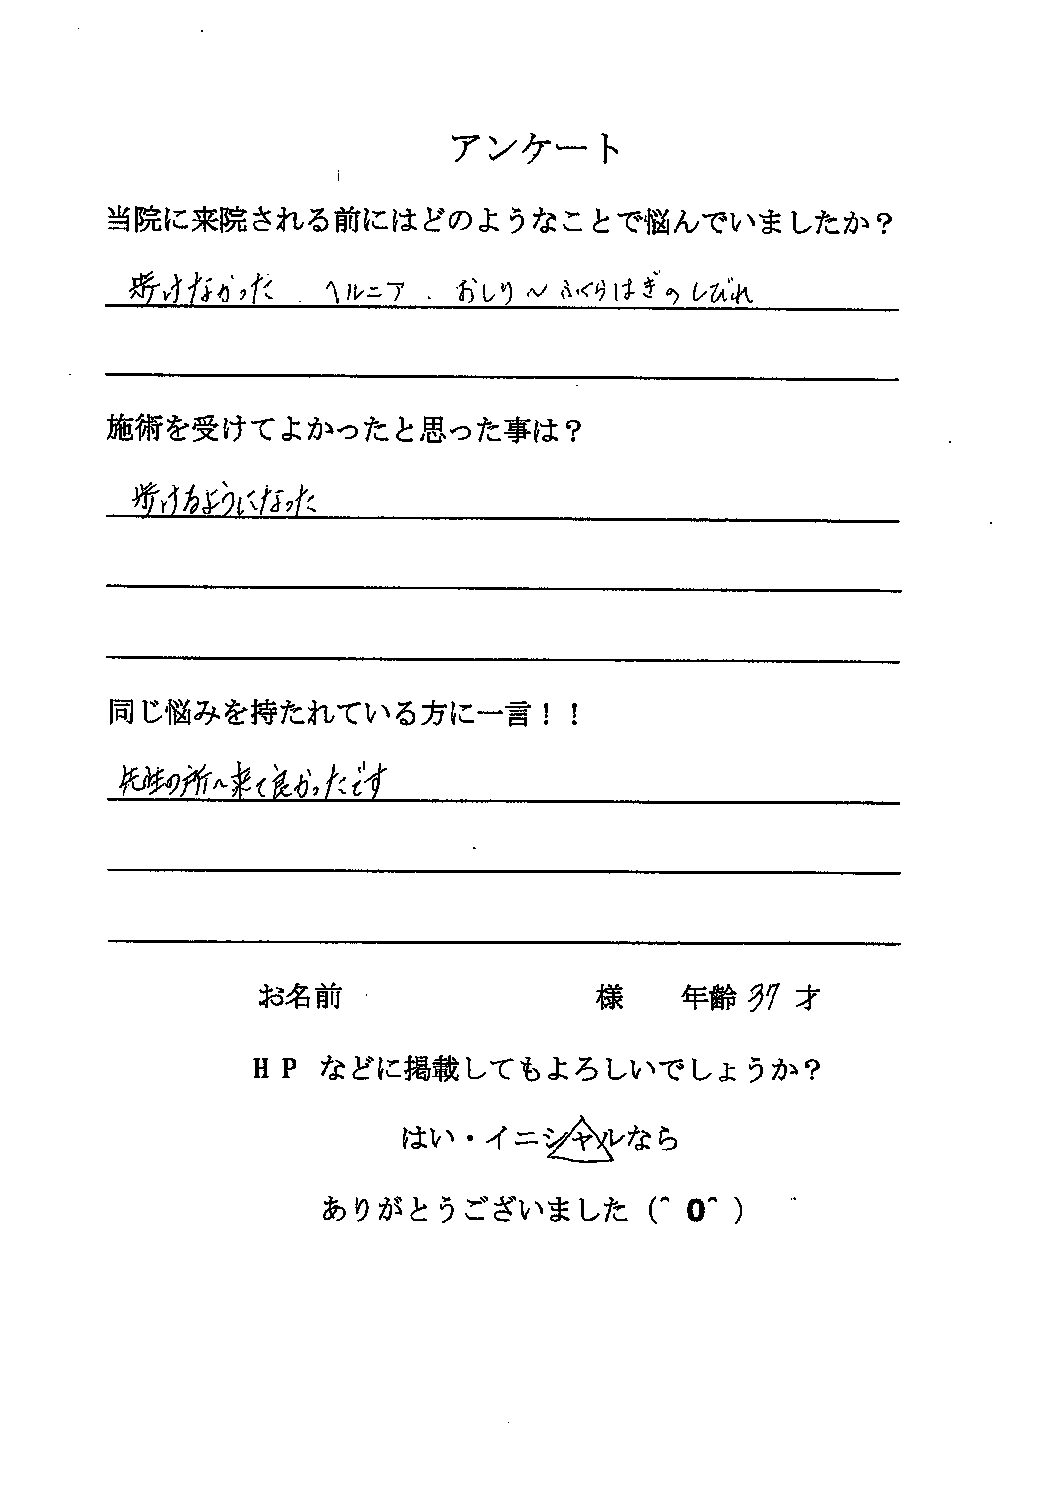 アンケート
当院に来院される前にはどのようなことで悩んでいましたか？
歩けなかった．ヘルニア．おしり～ふくらはぎのしびれ
施術を受けてよかったと思った事は？
歩けるようになった
同じ悩みを持たれている方に一言！！
先生の所へ来て良かったです
お名前 様 年齢 37 才
HP などに掲載してもよろしいでしょうか？
はい・イニシャルなら
ありがとうございました（＾0＾）